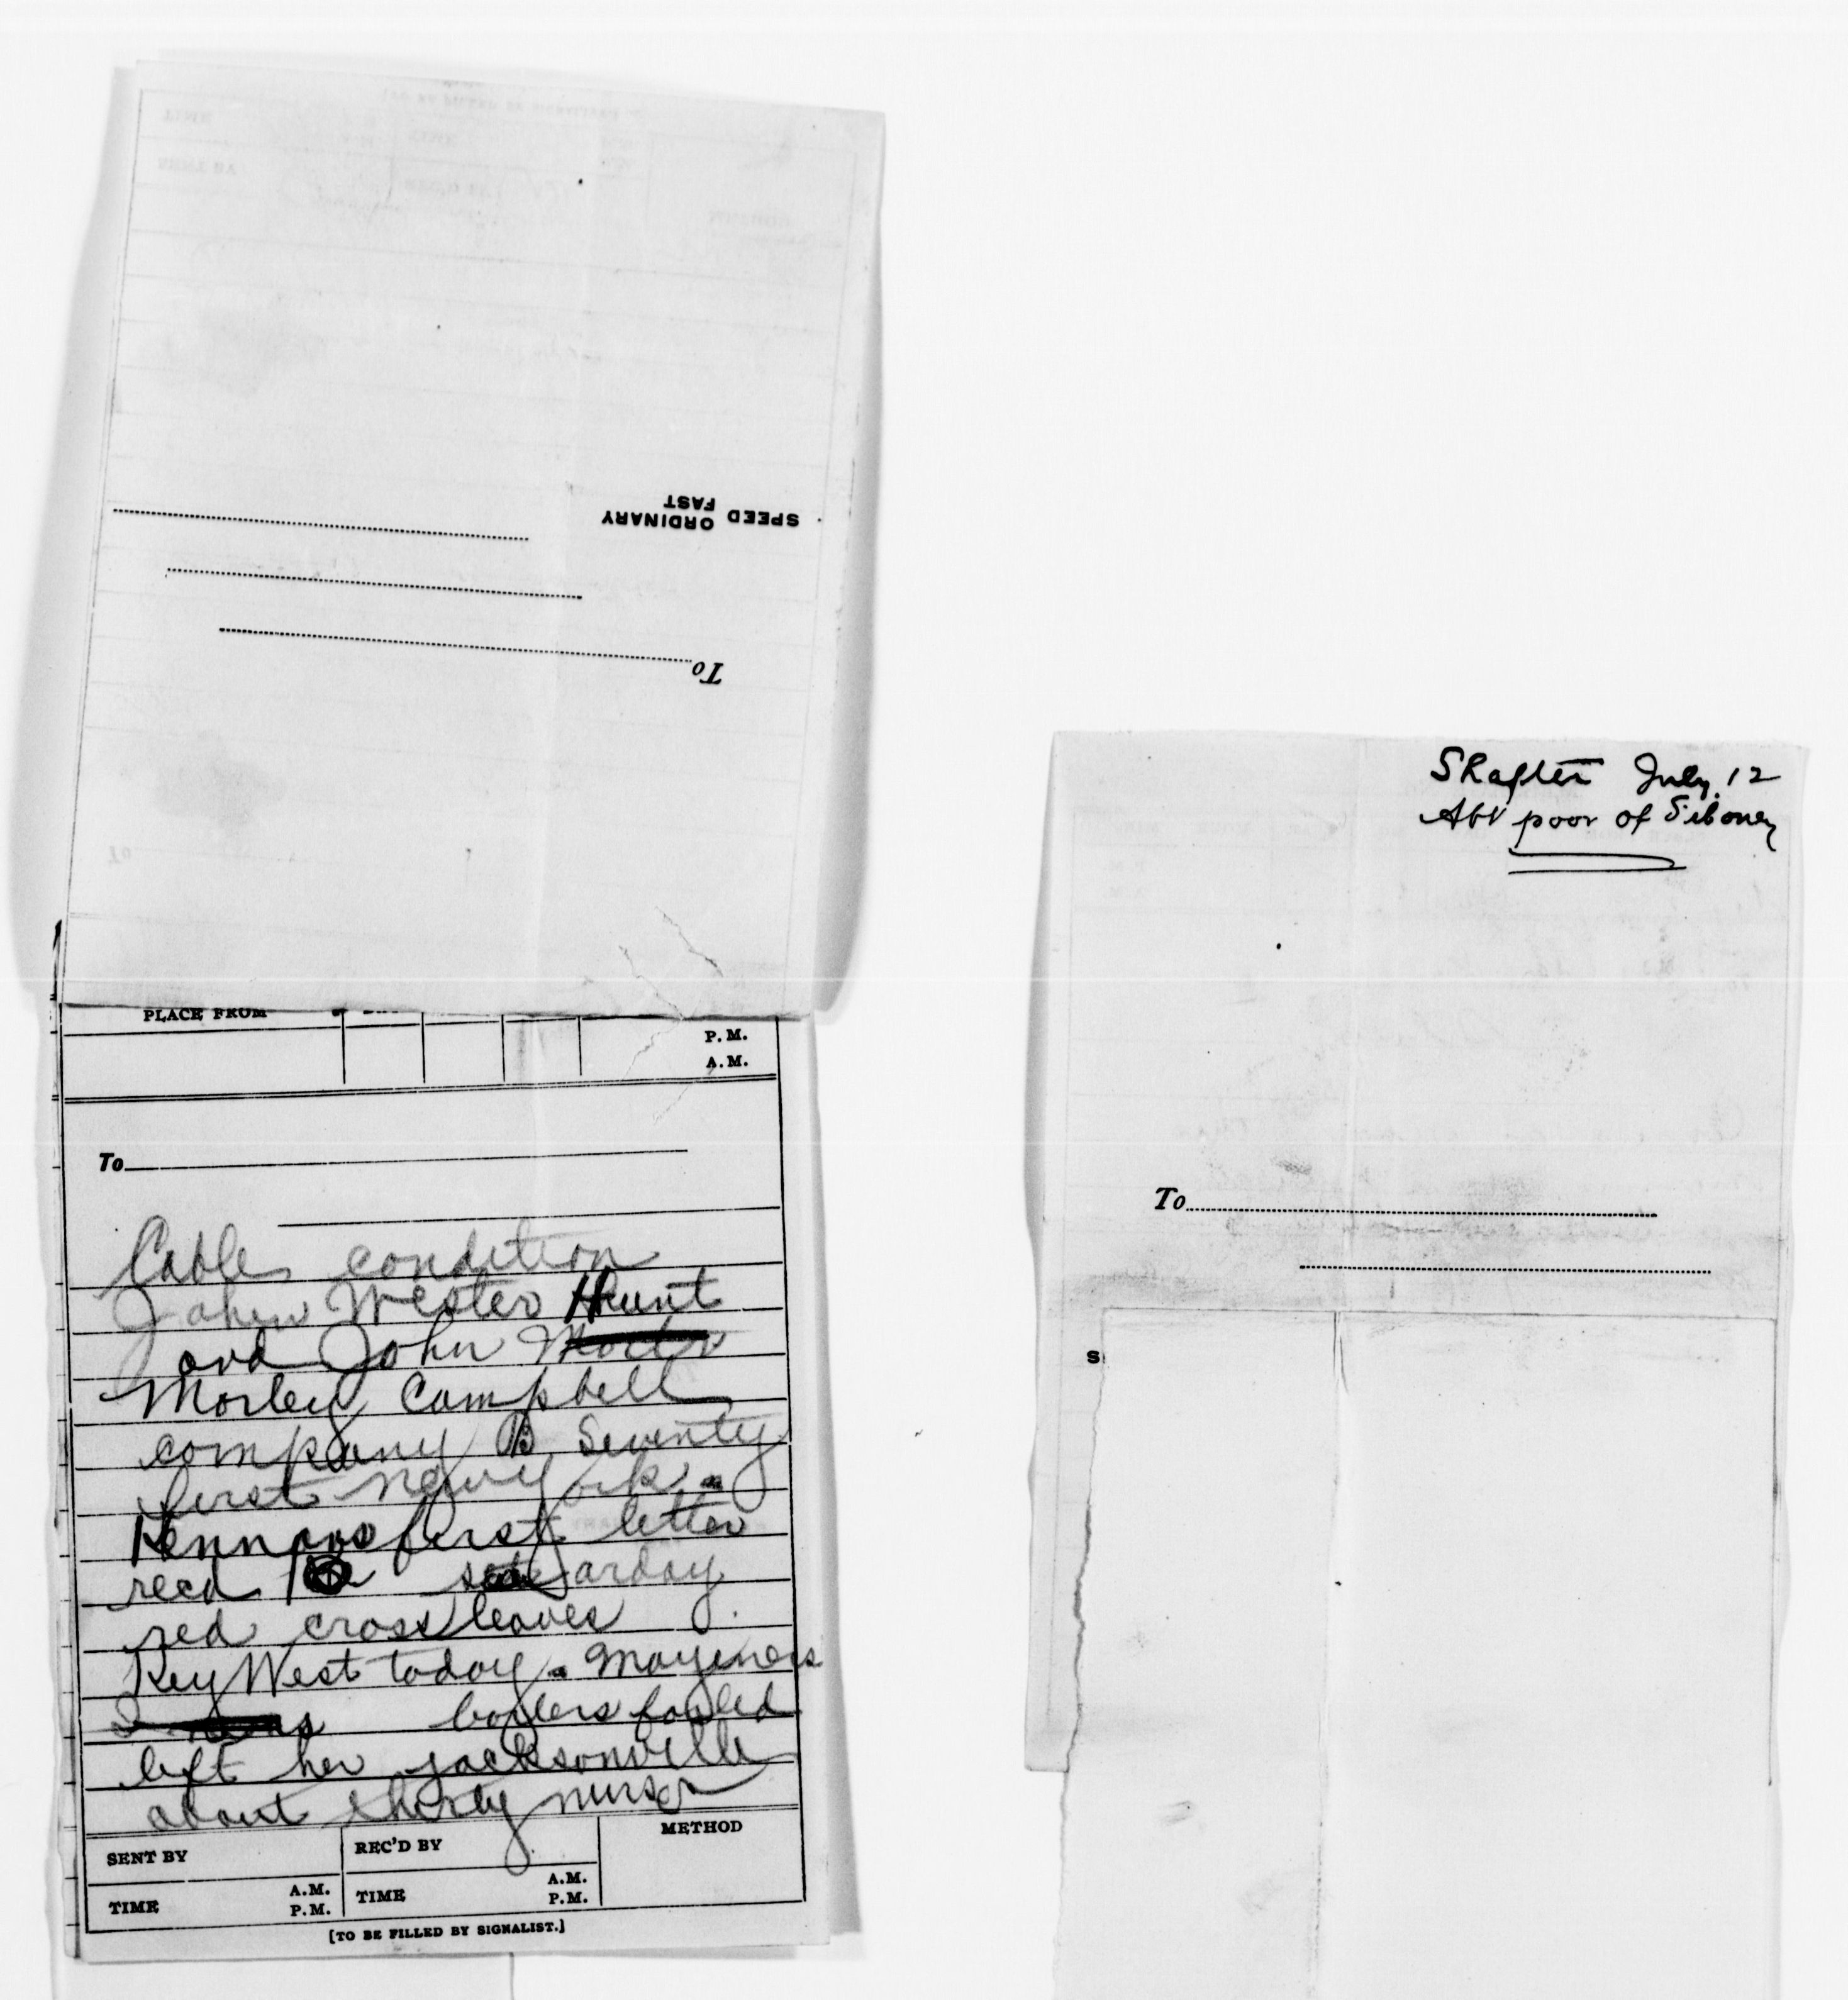 SPEED ORDINARY
FAST
To
PLACE FROM
P.M.
A.M.
To
Cable condition
John Wester Hunt
and John
Morley Campbell
company B Seventy
first New York
Kennans first letter
recd
red cross leaves
Key West today
boilers failed
left her jacksonville
about thirty nurses
SENT BY
REC'D BY
METHOD
TIME
A.M.
P.M.
TIME
A.M.
P.M.
[TO BE FILLED BY SIGNALIST.]
Shafter July 12
Abt poor of Siboney
To
S